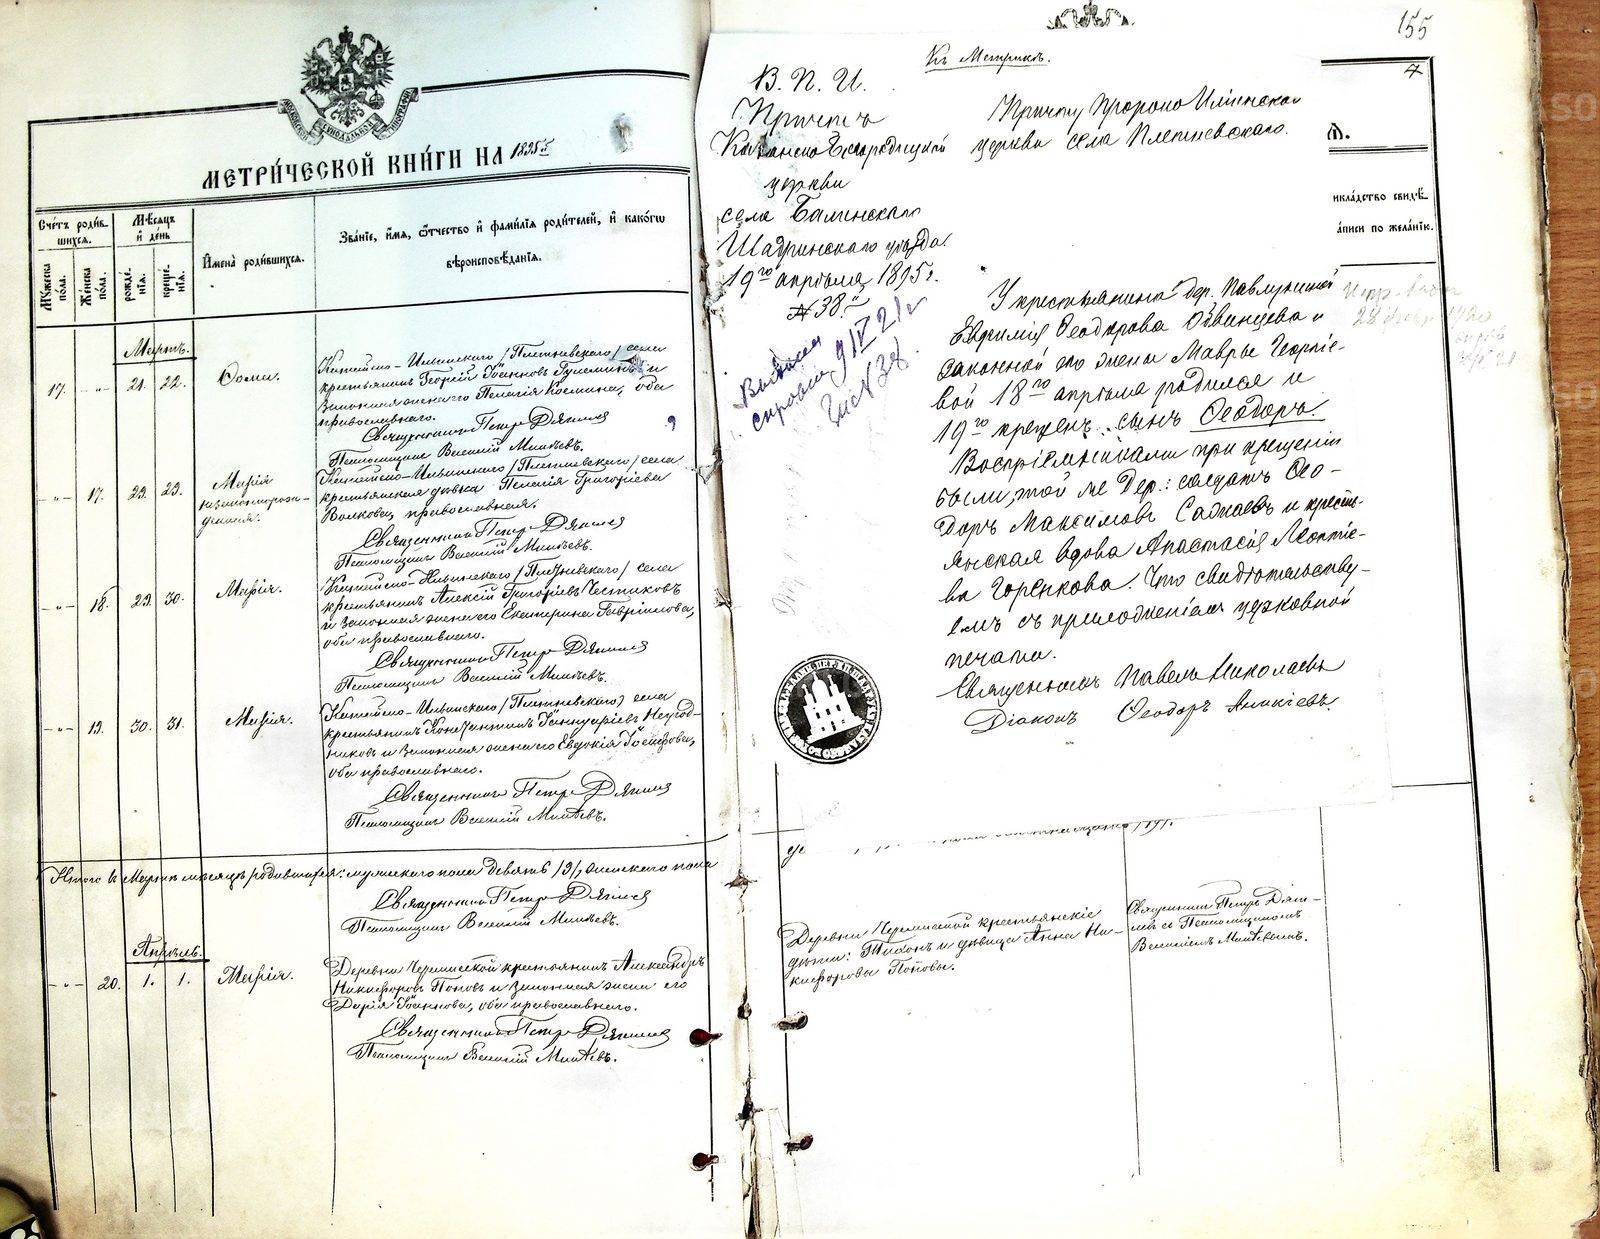 МЕТРИ́ЧЕСКОЙ КНИ́ГИ НА 1895 г.
Сче́тъ роди́вшихся.
Му́жеска по́ла.
Же́нска по́ла.
Мѣ́сяцъ и҆ де́нь
рожде́нїя.
креще́нїя.
И҆мена̀ роди́вшихся.
Зва́нїе, и҆́мя, ѻ҆́тчество и҆ фами́лїя роди́телей, и҆ како́гѡ
вѣроисповѣ́данїя.
Мартъ.
17. 21. 22. Ѳома.
Катайско-Ильинскаго /Плетневскаго/ села
крестьянинъ Георгій Іоанновъ и
законная жена его Пелагія Космина, оба
православнаго.
Священникъ Петръ Дягилев
Псаломщикъ Василій Минѣевъ.
17. 23. 23. Марія
незаконнорож-
денная.
Катайско-Ильинскаго /Плетневскаго/ села
крестьянская дѣвка Пелагія Григоріева
Волкова, православная.
Священникъ Петръ Дягилев
Псаломщикъ Василій Минѣевъ.
18. 29. 30. Марія.
Катайско-Ильинскаго /Плетневскаго/ села
крестьянинъ Алексій Григоріевъ
и законная жена его Екатерина Гавріилова,
оба православнаго.
Священникъ Петръ Дягилев
Псаломщикъ Василій Минѣевъ.
19. 30. 31. Марія.
Катайско-Ильинскаго /Плетневскаго/ села
крестьянинъ Константинъ Іаннуаріевъ Негод-
никовъ и законная жена его Евдокія Іосифова,
оба православнаго.
Священникъ Петръ Дягилев
Псаломщикъ Василій Минѣевъ.
Итого въ Мартѣ мѣсяцѣ родившихся: мужескаго пола девять /9/, женскаго пола
Священникъ Петръ Дягилев
Псаломщикъ Василій Минѣевъ.
Апрѣль.
20. 1. 1. Марія.
Деревни крестьянинъ Александръ
Никифоровъ Поповъ и законная жена его
Дарія Іоаннова, оба православнаго.
Священникъ Петръ Дягилев
Псаломщикъ Василій Минѣевъ.
155
Къ Метрикѣ.
В. П. И.
Причтъ
Казанско-Богородицкой
церкви
села
Шадринскаго уѣзда.
19го апрѣля 1895 г.
№ 38.
Выдана
справка 9/IV 21 г
Причту Пророко Илiинской
церкви села Плетневскаго.
У крестьянина дер.
Евѳимія Ѳеодорова и
законной его жены Мавры Георгіе-
вой 18го апрѣля родился и
19го крещенъ сынъ Ѳеодоръ.
Воспріемниками при крещеніи
были, той же дер.: солдатъ Ѳео-
доръ Максимовъ и кресть-
янская вдова Анастасія Леонтіе-
ва Горенкова. Что свидѣтельству-
емъ съ приложеніемъ церковной
печати.
Священникъ Павелъ Николаевъ
Діаконъ Ѳеодоръ Аникіевъ
4
ѧ҆.
икла́дство свидѣ́
а́писи по жела́нїю.
Деревни крестьянскіе
дѣти: Тихонъ и дѣвица Анна Ни-
кифоровы Поповы.
Священникъ Петръ Дяги-
левъ съ Псаломщикомъ
Василіемъ Минѣевымъ.